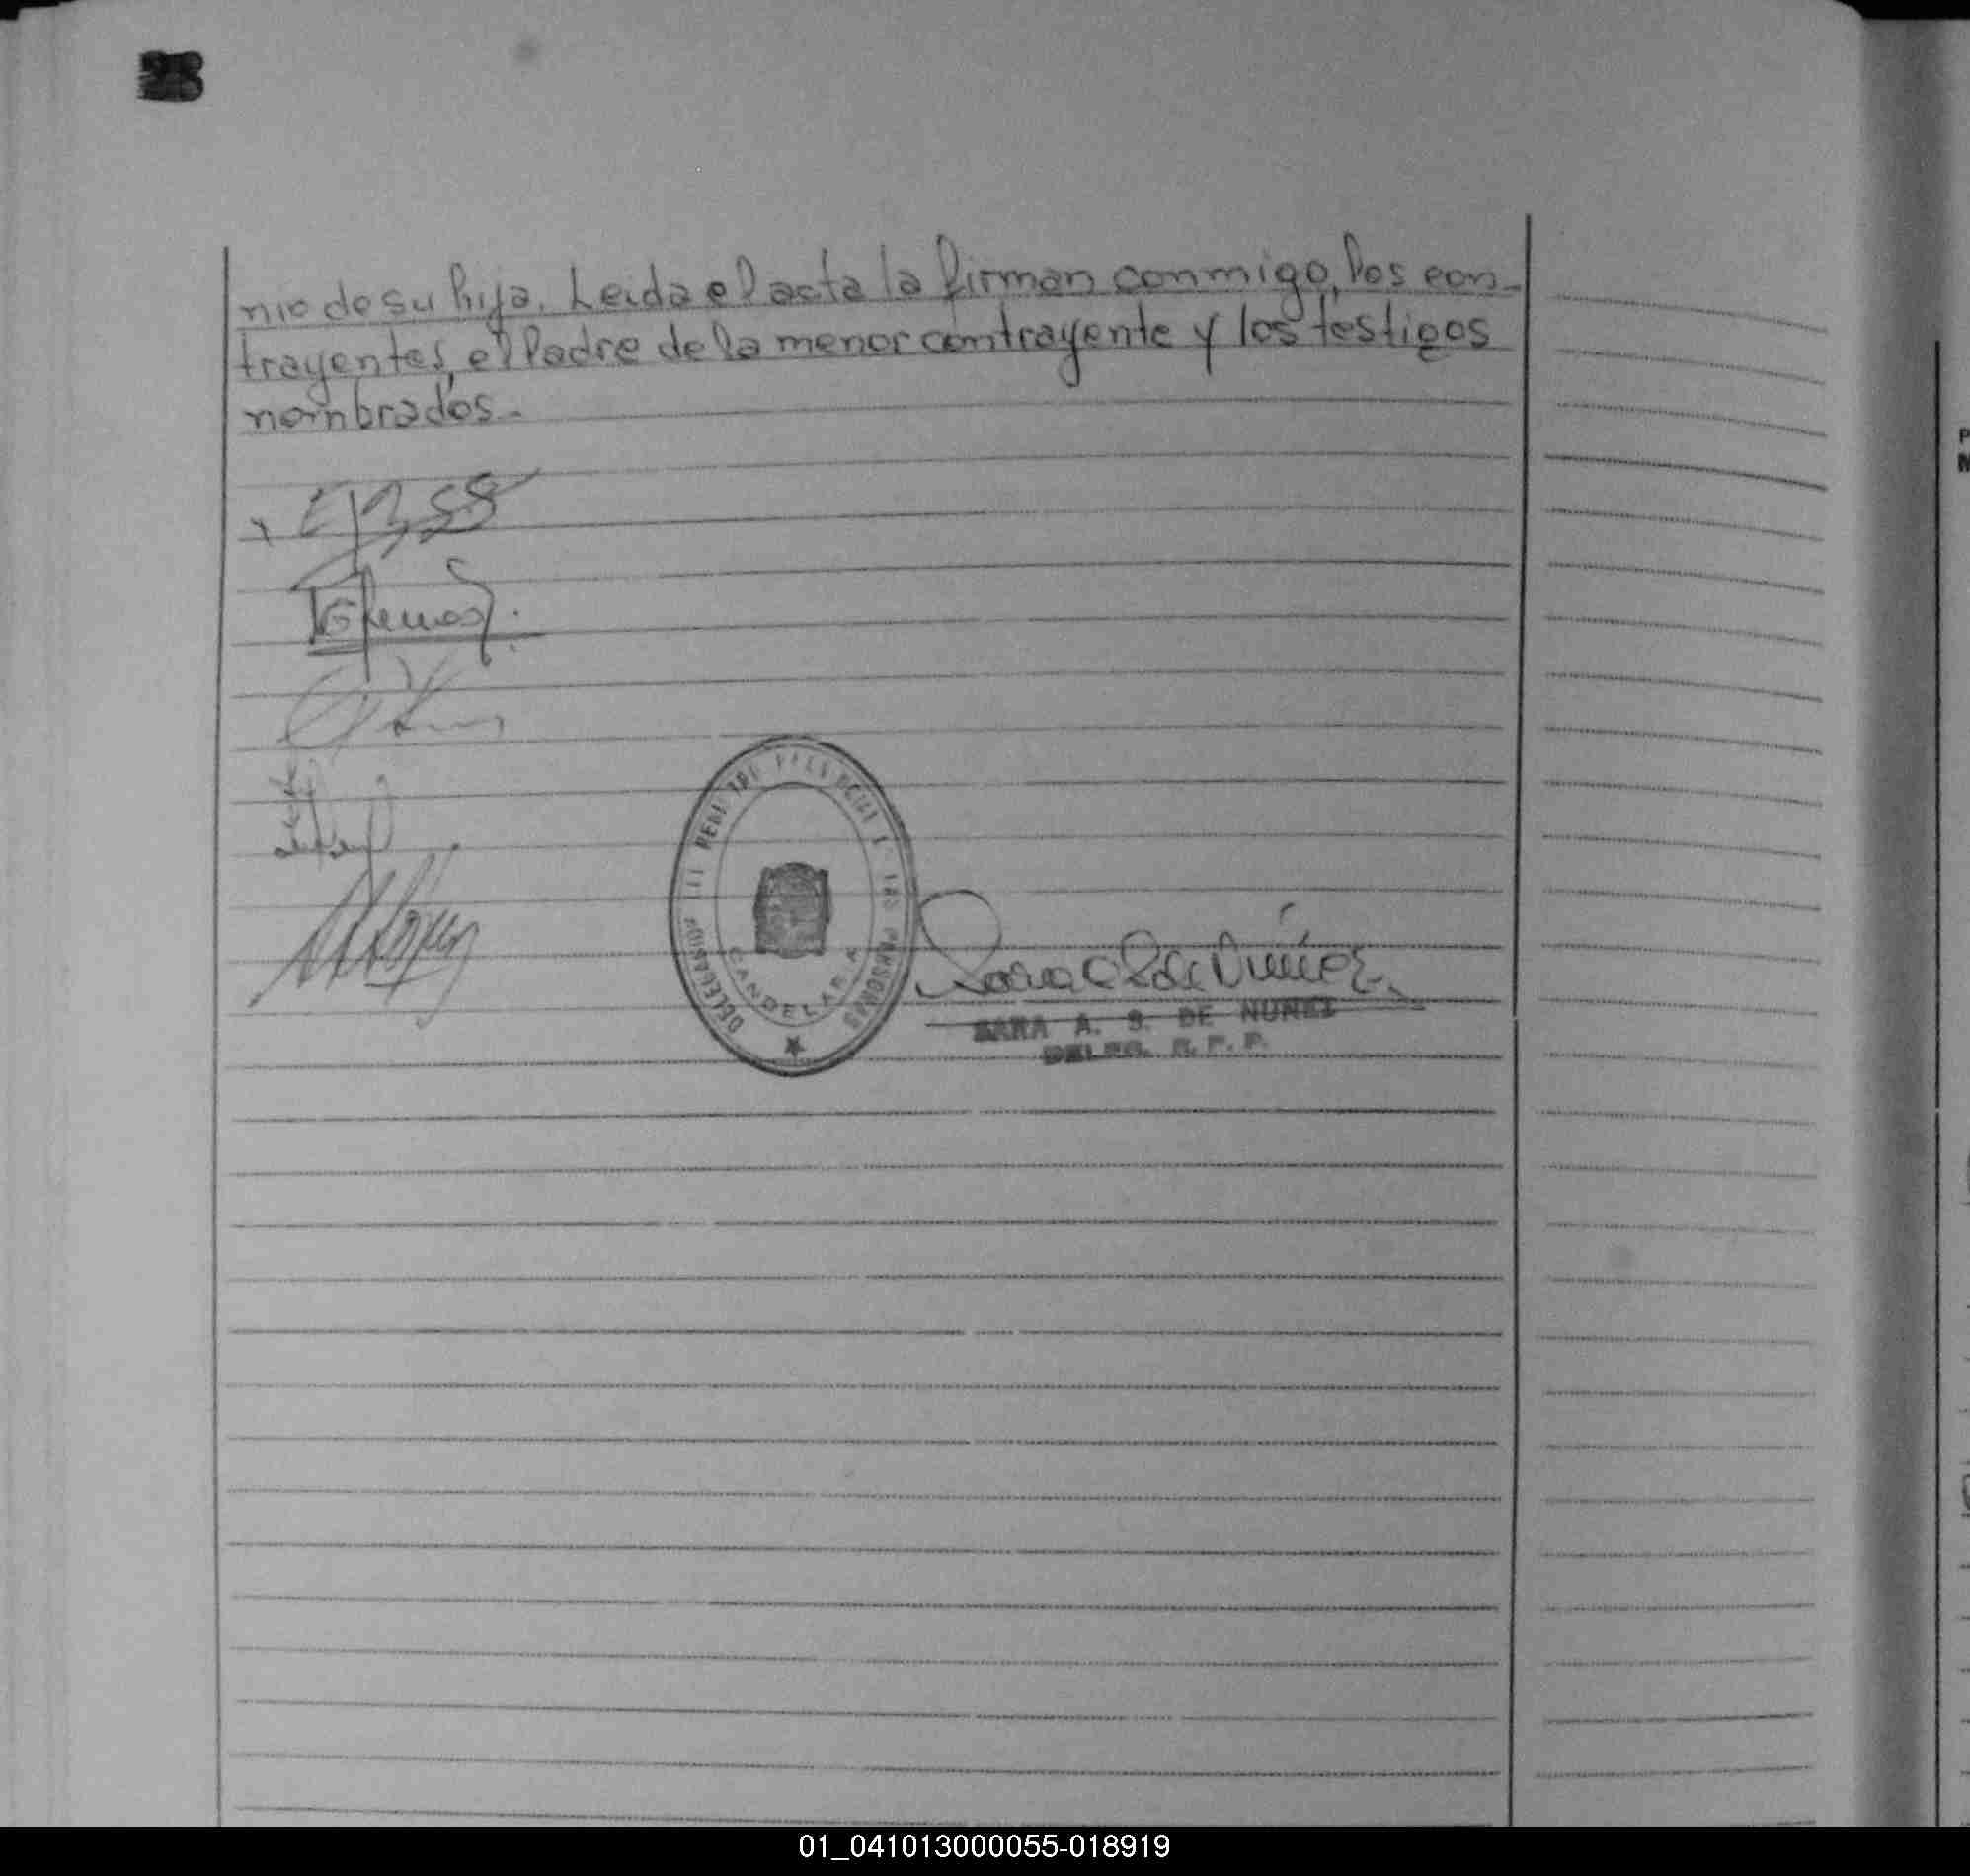 28
nio de su hija. Leida el acta la firman conmigo, los con-
trayentes, el Padre de la menor contrayente y los testigos
nombrados.-
DELEGADO DEL REGISTRO PROVINCIAL DE LAS PERSONAS
CANDELARIA
SARA A. S. DE NUÑEZ
DELEG. R. P. P.
01_041013000055-018919